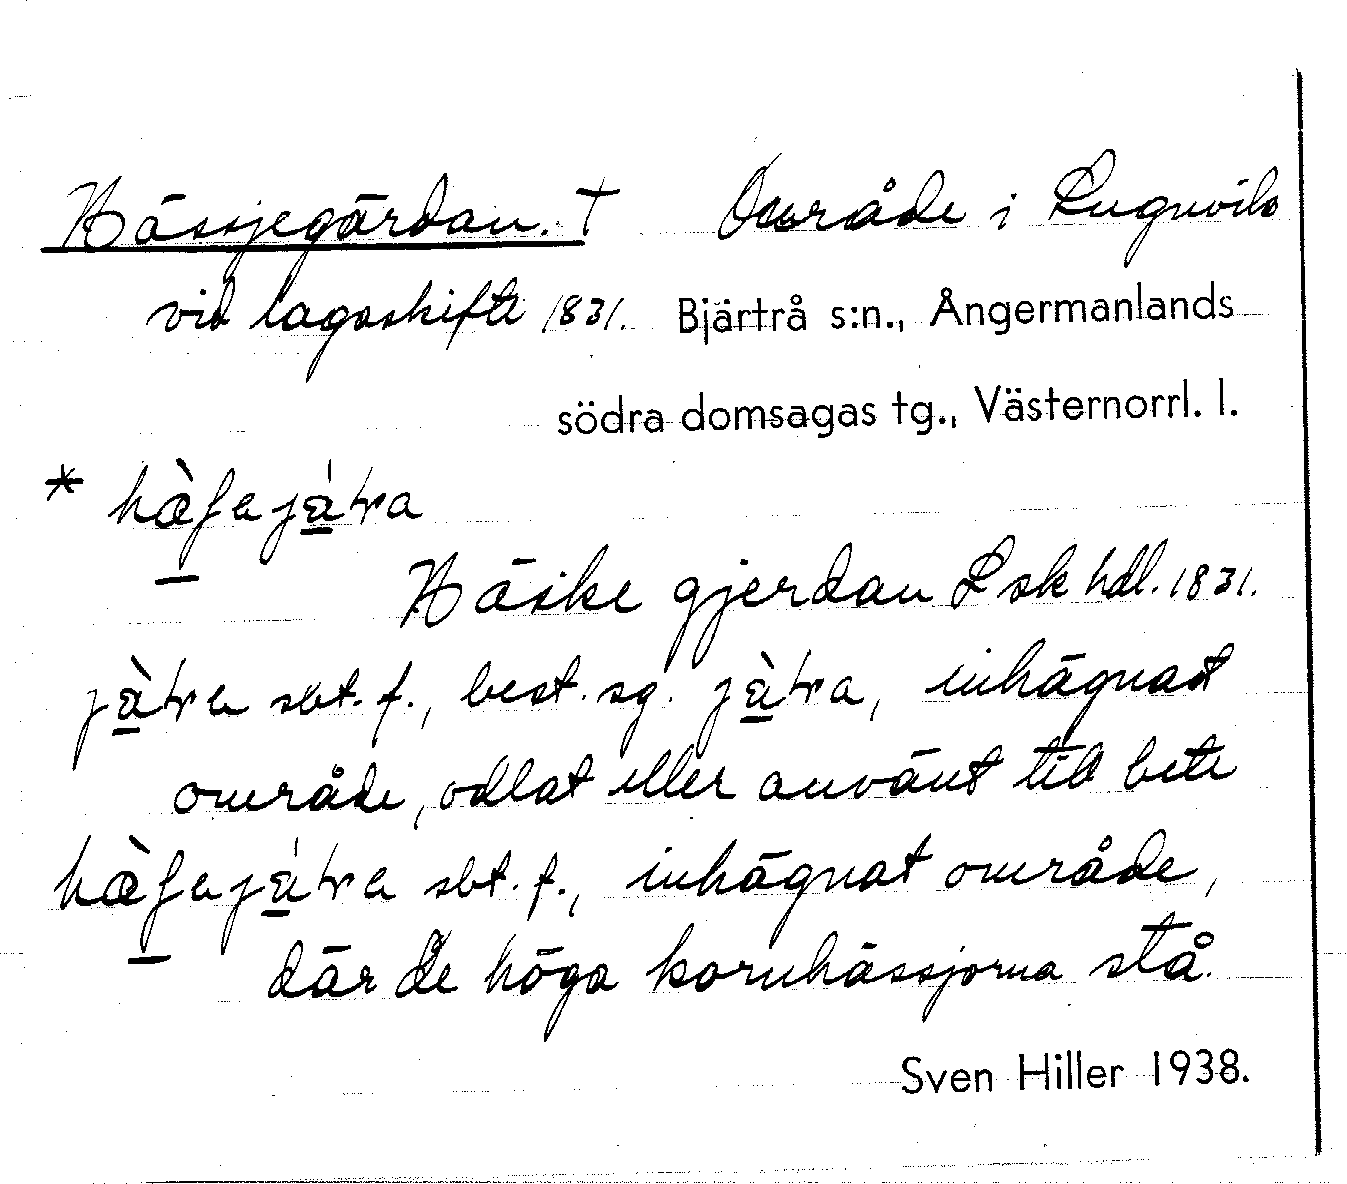 Hässjegärdan. † Område i Lugnvik
vid lagaskifte 1831. Bjärtrå s:n., Ångermanlands
södra domsagas tg., Västernorrl. l.
* hæ̀ʃajá̠ʈra
Häske gjerdan Lsk hdl. 1831.
jà̠ʈra sbt. f., best. sg. jà̠ʈra, inhägnat
område, odlat eller använt till bete
hæ̀ʃajá̠ʈra sbt. f., inhägnat område,
där de höga kornhässjorna stå.
Sven Hiller 1938.